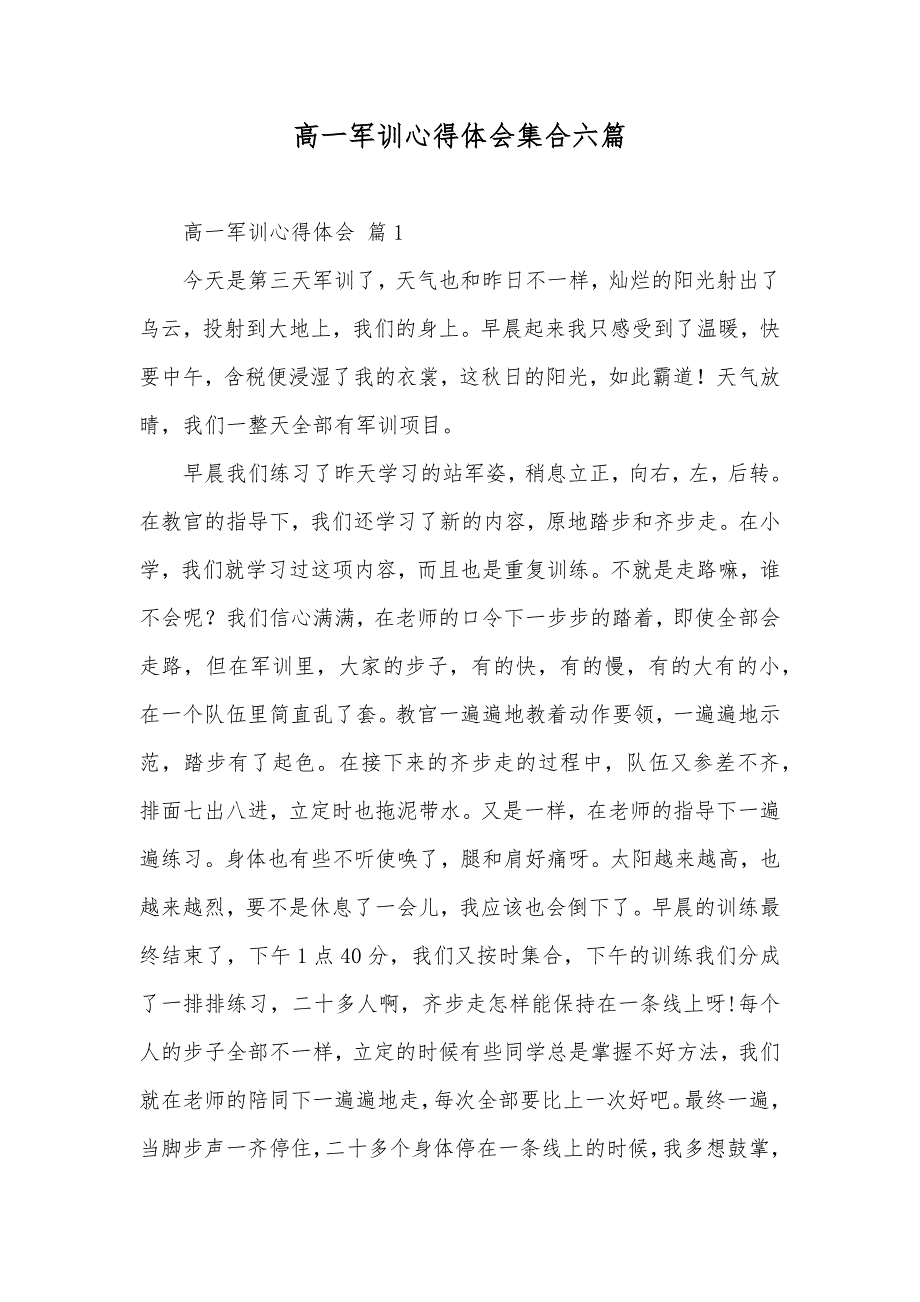 高一军训心得体会集合六篇
高一军训心得体会 篇1
今天是第三天军训了，天气也和昨日不一样，灿烂的阳光射出了
乌云，投射到大地上，我们的身上。早晨起来我只感受到了温暖，快
要中午，含税便浸湿了我的衣裳，这秋日的阳光，如此霸道！天气放
晴，我们一整天全部有军训项目。
早晨我们练习了昨天学习的站军姿，稍息立正，向右，左，后转。
在教官的指导下，我们还学习了新的内容，原地踏步和齐步走。在小
学，我们就学习过这项内容，而且也是重复训练。不就是走路嘛，谁
不会呢？我们信心满满，在老师的口令下一步步的踏着，即使全部会
走路，但在军训里，大家的步子，有的快，有的慢，有的大有的小，
在一个队伍里简直乱了套。教官一遍遍地教着动作要领，一遍遍地示
范，踏步有了起色。在接下来的齐步走的过程中，队伍又参差不齐，
排面七出八进，立定时也拖泥带水。又是一样，在老师的指导下一遍
遍练习。身体也有些不听使唤了，腿和肩好痛呀。太阳越来越高，也
越来越烈，要不是休息了一会儿，我应该也会倒下了。早晨的训练最
终结束了，下午1点40分，我们又按时集合，下午的训练我们分成
了一排排练习，二十多人啊，齐步走怎样能保持在一条线上呀!每个
人的步子全部不一样，立定的时候有些同学总是掌握不好方法，我们
就在老师的陪同下一遍遍地走，每次全部要比上一次好吧。最终一遍，
当脚步声一齐停住，二十多个身体停在一条线上的时候，我多想鼓掌，